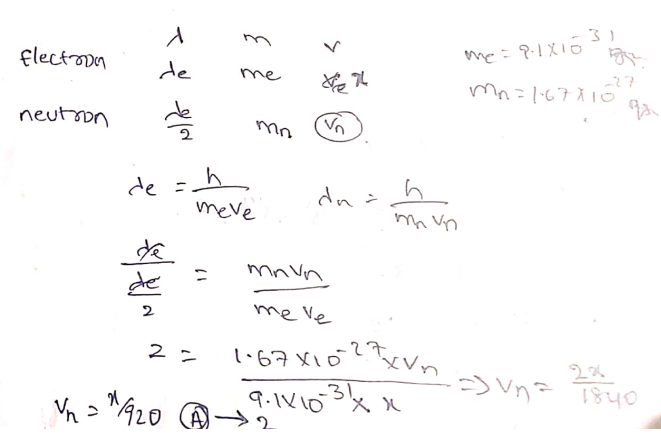 λ m v
Electron λe me x me = 9.1×10^-31 kgs.
neutron λe/2 mn (vn) mn = 1.67×10^-27 kgs.
λe = h/meve λn = h/mnvn
λe/(λe/2) = mnvn/meve
2 = (1.67×10^-27 × vn)/(9.1×10^-31 × x) ⇒ vn = 2x/1840
vn = x/920 (A) → 2